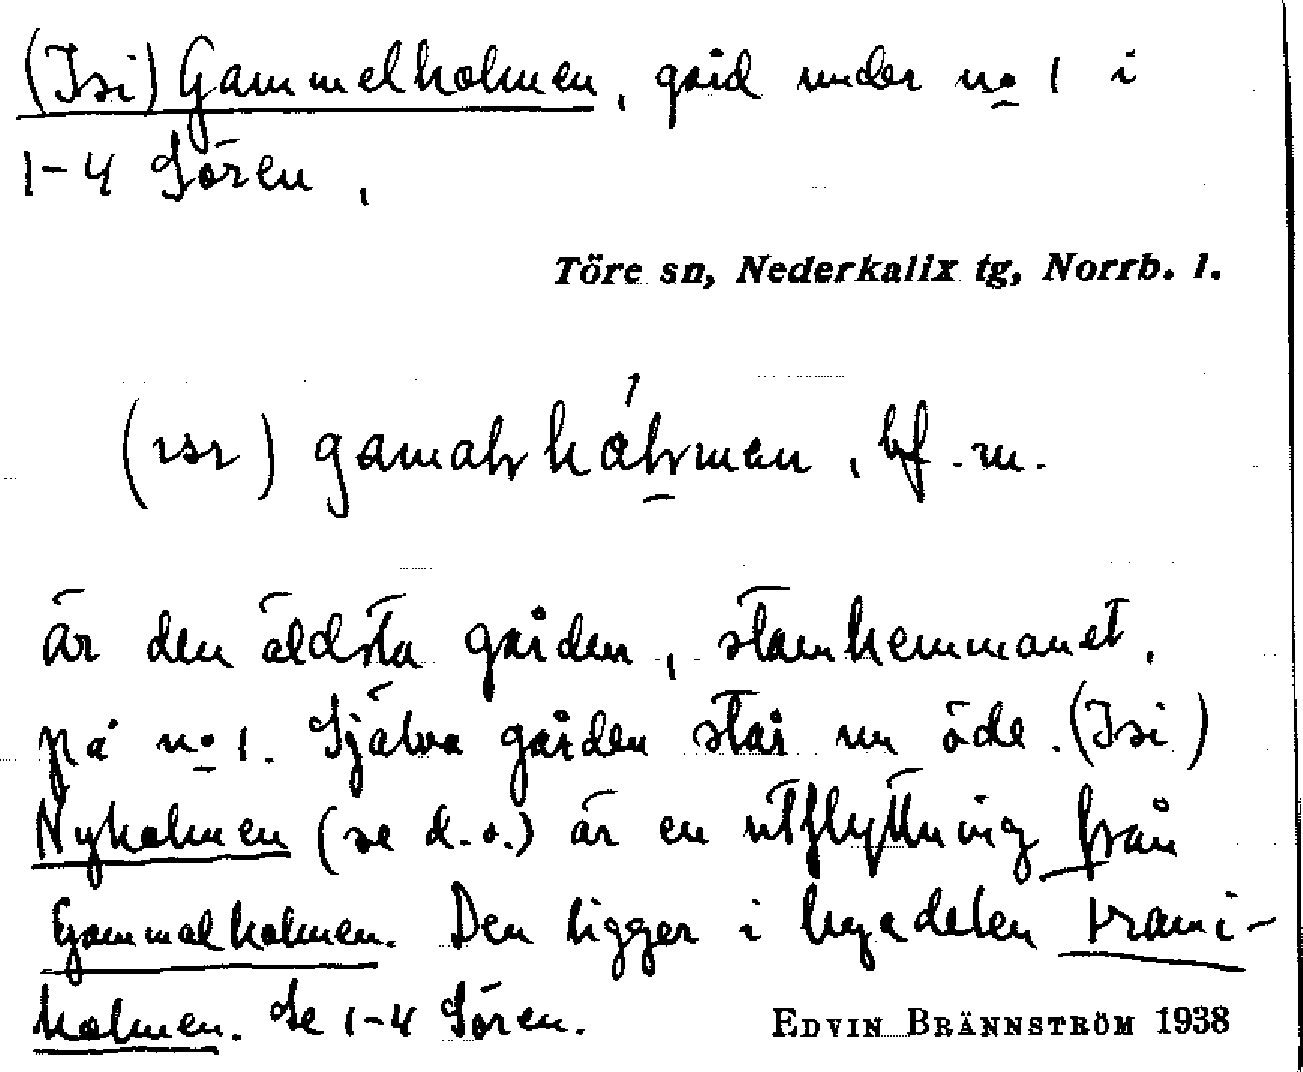 (Isi) Gammelholmen, gård under no 1 i
1-4 Sören,
Töre sn, Nederkalix tg, Norrb. l.
bf. m.
är den äldsta gården, stamhemmanet,
på no 1. Själva gården står nu öde. (Isi)
Nyholmen (se d.o.) är en utflyttning från
Gammalholmen. Den ligger i byadelen
holmen. Se 1-4 Sören.
EDVIN BRÄNNSTRÖM 1938